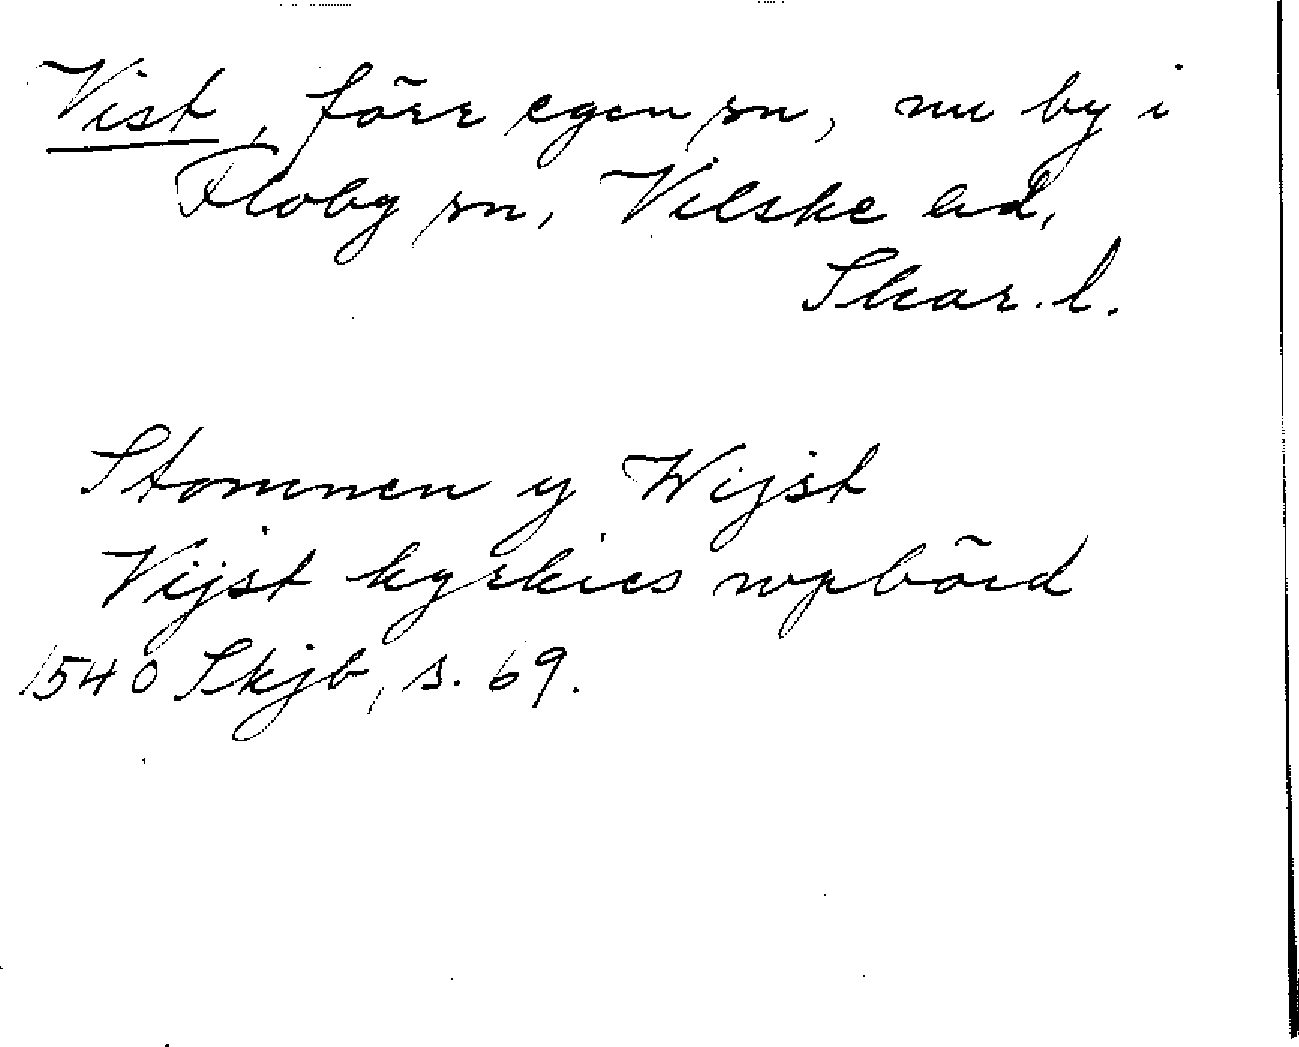 Vist, förr egen sn, nu by i
Floby sn, Vilske hd,
Skar. l.
Stommen y Wijst
Vijst kyrkies wpbörd
1540 Skjb, s. 69.